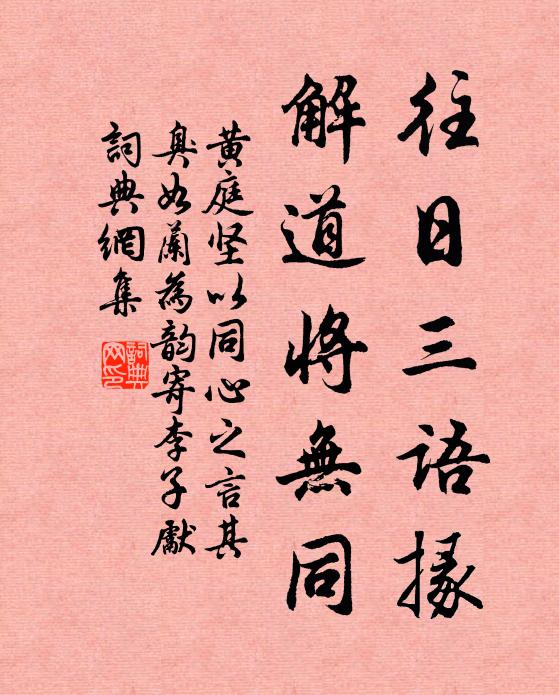 往日三語掾
解道將無同
黄庭坚以同心之言其
臭如蘭為韵寄李子獻
詞典網集
詞典網印